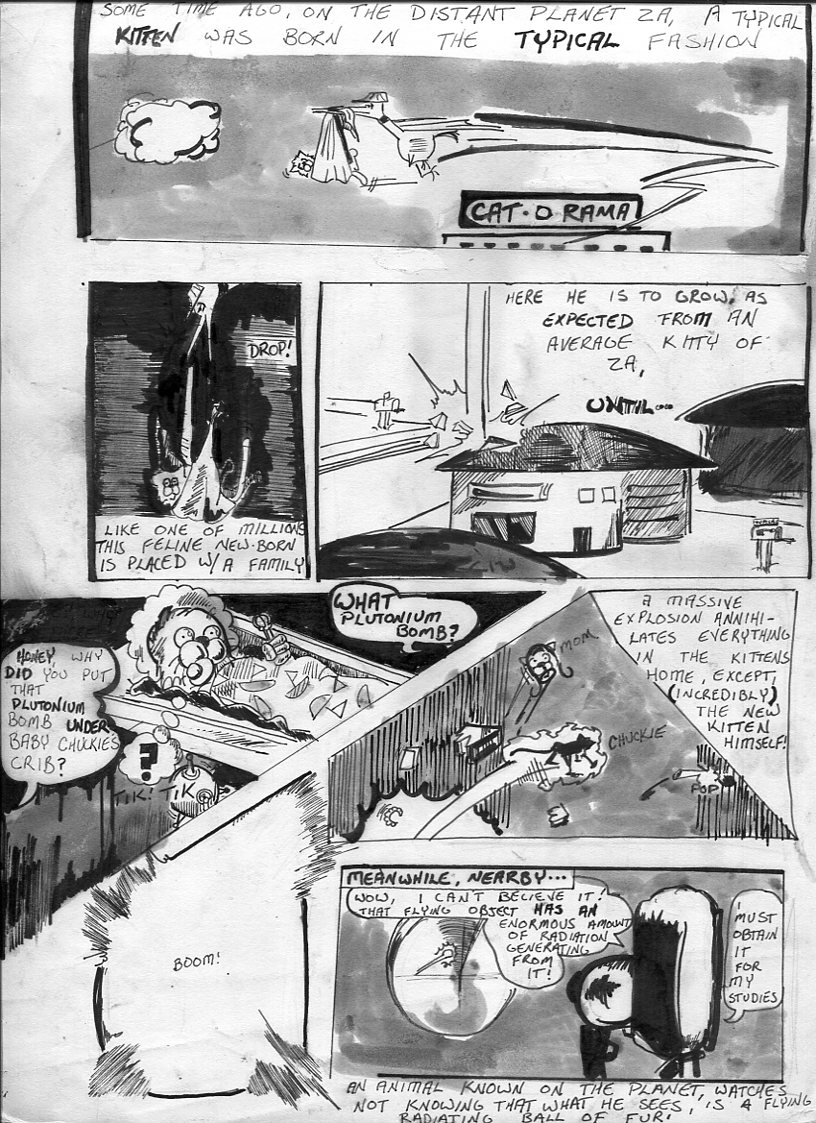 SOME TIME AGO, ON THE DISTANT PLANET ZA, A TYPICAL
KITTEN WAS BORN IN THE TYPICAL FASHION
CAT-O RAMA
DROP!
LIKE ONE OF MILLIONS
THIS FELINE NEW-BORN
IS PLACED W/A FAMILY
HERE HE IS TO GROW, AS
EXPECTED FROM AN
AVERAGE KITTY OF
ZA,
UNTIL...
HONEY, WHY
DID YOU PUT
THAT
PLUTONIUM
BOMB UNDER
BABY CHUCKIES
CRIB?
WHAT
PLUTONIUM
BOMB?
?
TIK! TIK
A MASSIVE
EXPLOSION ANNIHI-
LATES EVERYTHING
IN THE KITTENS
HOME, EXCEPT,
(INCREDIBLY)
THE NEW
KITTEN
HIMSELF!
MOM
CHUCKIE
POP
BOOM!
MEANWHILE, NEARBY...
WOW, I CAN'T BELIEVE IT!
THAT FLYING OBJECT HAS AN
ENORMOUS AMOUNT
OF RADIATION
GENERATING
FROM
IT!
I
MUST
OBTAIN
IT
FOR
MY
STUDIES
AN ANIMAL KNOWN ON THE PLANET, WATCHES
NOT KNOWING THAT WHAT HE SEES, IS A FLYING
RADIATING BALL OF FUR!